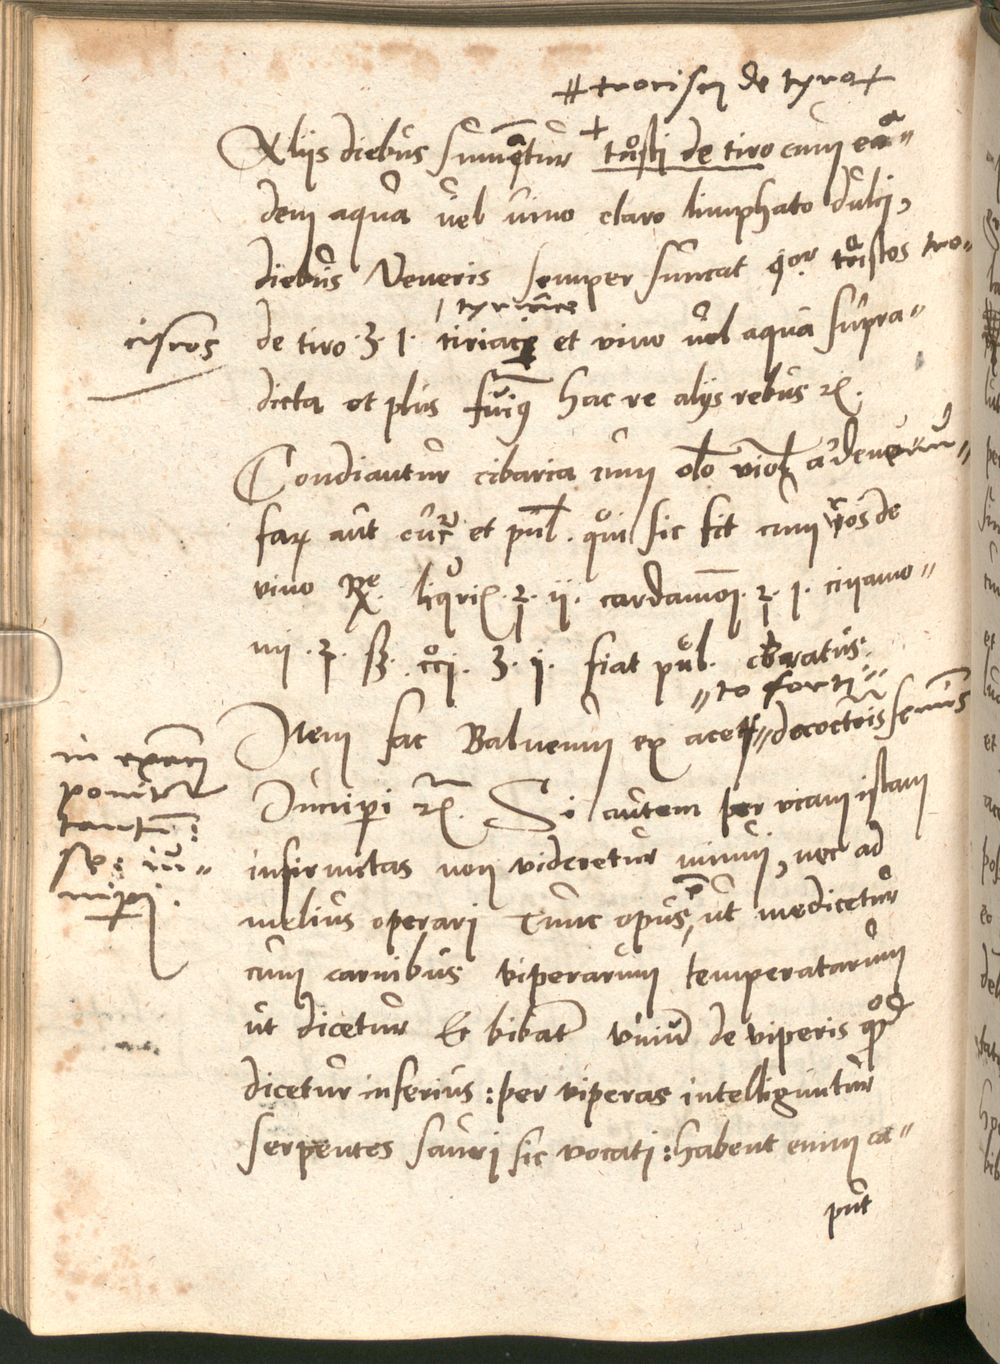 # trociscj de tyro +
Aliis diebus sumātur + trosti de tiro cum ea"
dem aqua uel uino claro limphato dulcj,
diebus Veneris semper sumat qor trostos tro"
ciscos
tyriace
de tiro ʒ j. tiriace et vino uel aqua supra"
dicta et plus hac re alijs rebus
Condiantur cibaria cum olo viol
aut et pul. qui sic fit cum de
vino Rx. ʒ. ij. cardamoj. ʒ. j. cinamo"
mi. ʒ. ß. ʒ. j. fiat pul.
"to forti"
Item fac Balneum ex aceto "decoctōis
ponitur
tantū:
Juniperi Si autem per viam istam
infirmitas non videretur minui, nec ad
niperi.
melius operari Tunc opus ē, ut medicetur
cum carnibus viperarum temperatarum
ut dicetur Et bibat vinum de viperis qod
dicetur inferius: per viperas intelliguntur
serpentes sauri sic vocati: habent enim ca"
put